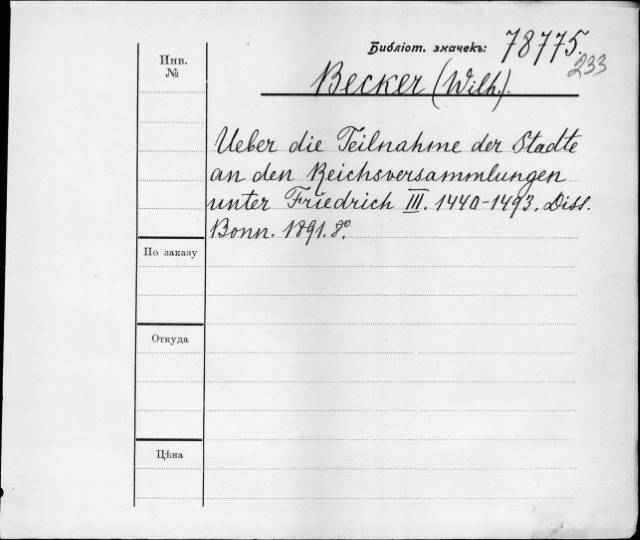 Библіот. значекъ: 78775.
233
Инв.
№
Becker (Wilh.).
Ueber die Teilnahme der Stadte
an den Reichsversammlungen
unter Friedrich III. 1440-1493. Diss.
Bonn. 1891. 8°.
По заказу
Откуда
Цѣна